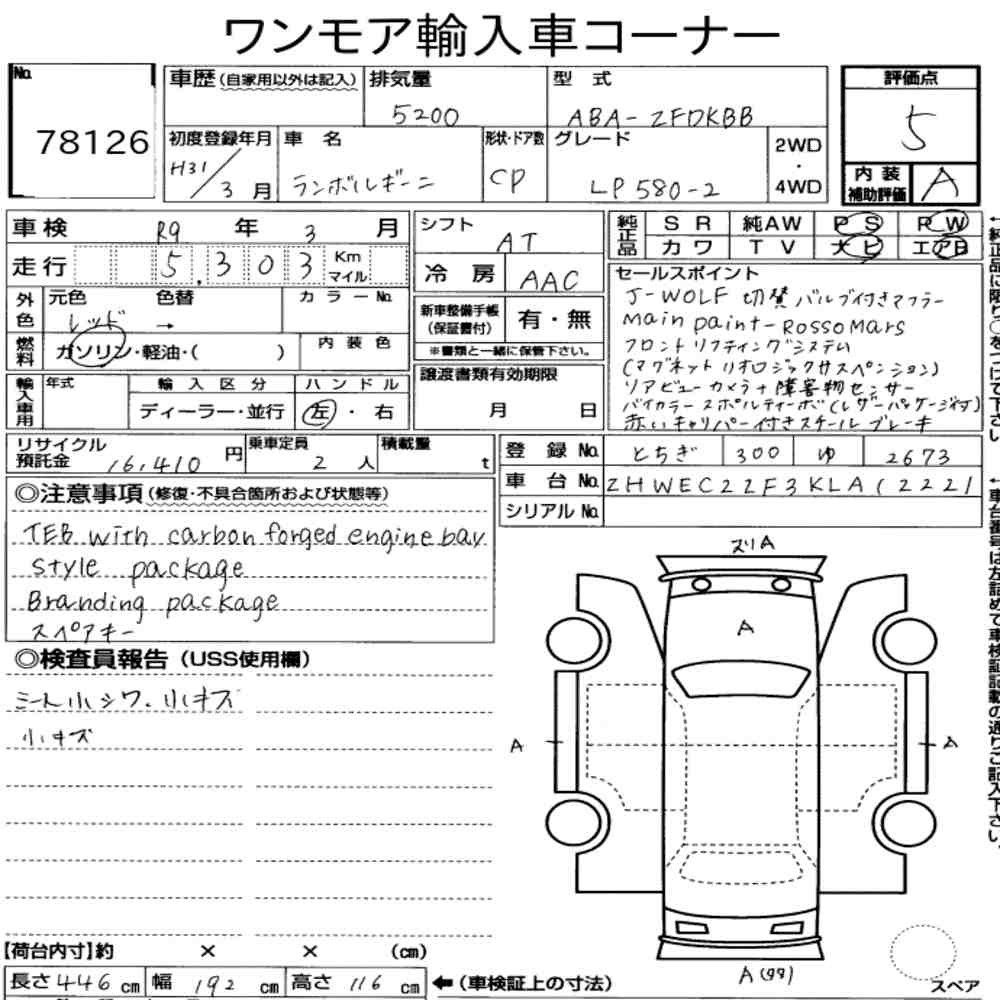 ワンモア輸入車コーナー
No. 78126
車歴(自家用以外は記入) 排気量 5200 型式 ABA-ZFDKBB
初度登録年月 H31/3月 車名 ランボルギーニ 形状・ドア数 CP グレード LP580-2 2WD・4WD
評価点 5
内装補助評価 A
車検 R9年 3月
走行 5,303 Km マイル
外色 元色 レッド 色替 → カラーNo.
燃料 ガソリン・軽油・( ) 内装色
輸入車用 年式 輸入区分 ディーラー・並行 ハンドル 左・右
シフト AT
冷房 AAC
新車整備手帳(保証書付) 有・無
※書類と一緒に保管下さい。
譲渡書類有効期限 月 日
純正品 SR 純AW PS PW
カワ TV ナビ エアB
セールスポイント
J-WOLF 切替バルブ付きマフラー
Main paint-Rosso Mars
フロントリフティングシステム
(マグネットリオロジックサスペンション)
リアビューカメラ+障害物センサー
バイカラースポルティーボ(レザーパッケージ付)
赤いキャリパー付きスチールブレーキ
リサイクル預託金 16,410円 乗車定員 2人 積載量 t
登録No. とちぎ 300 ゆ 2673
車台No. ZHWEC2ZF3KLA12221
シリアルNo.
◎注意事項(修復・不具合箇所および状態等)
TEB with carbon forged engine bay
style package
Branding package
スペアキー
◎検査員報告(USS使用欄)
シート小シワ、小キズ
小キズ
スリA
A
A
A
A(99)
スペア
【荷台内寸】約 × × (cm)
長さ 446 cm 幅 192 cm 高さ 116 cm ←(車検証上の寸法)
←純正品に限り○をつけて下さい。
←車台番号は左詰めで車検証記載の通りご記入下さい。